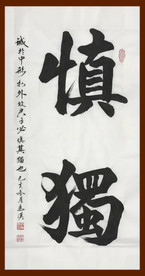 慎獨
誠於中形於外故君子必慎其獨也